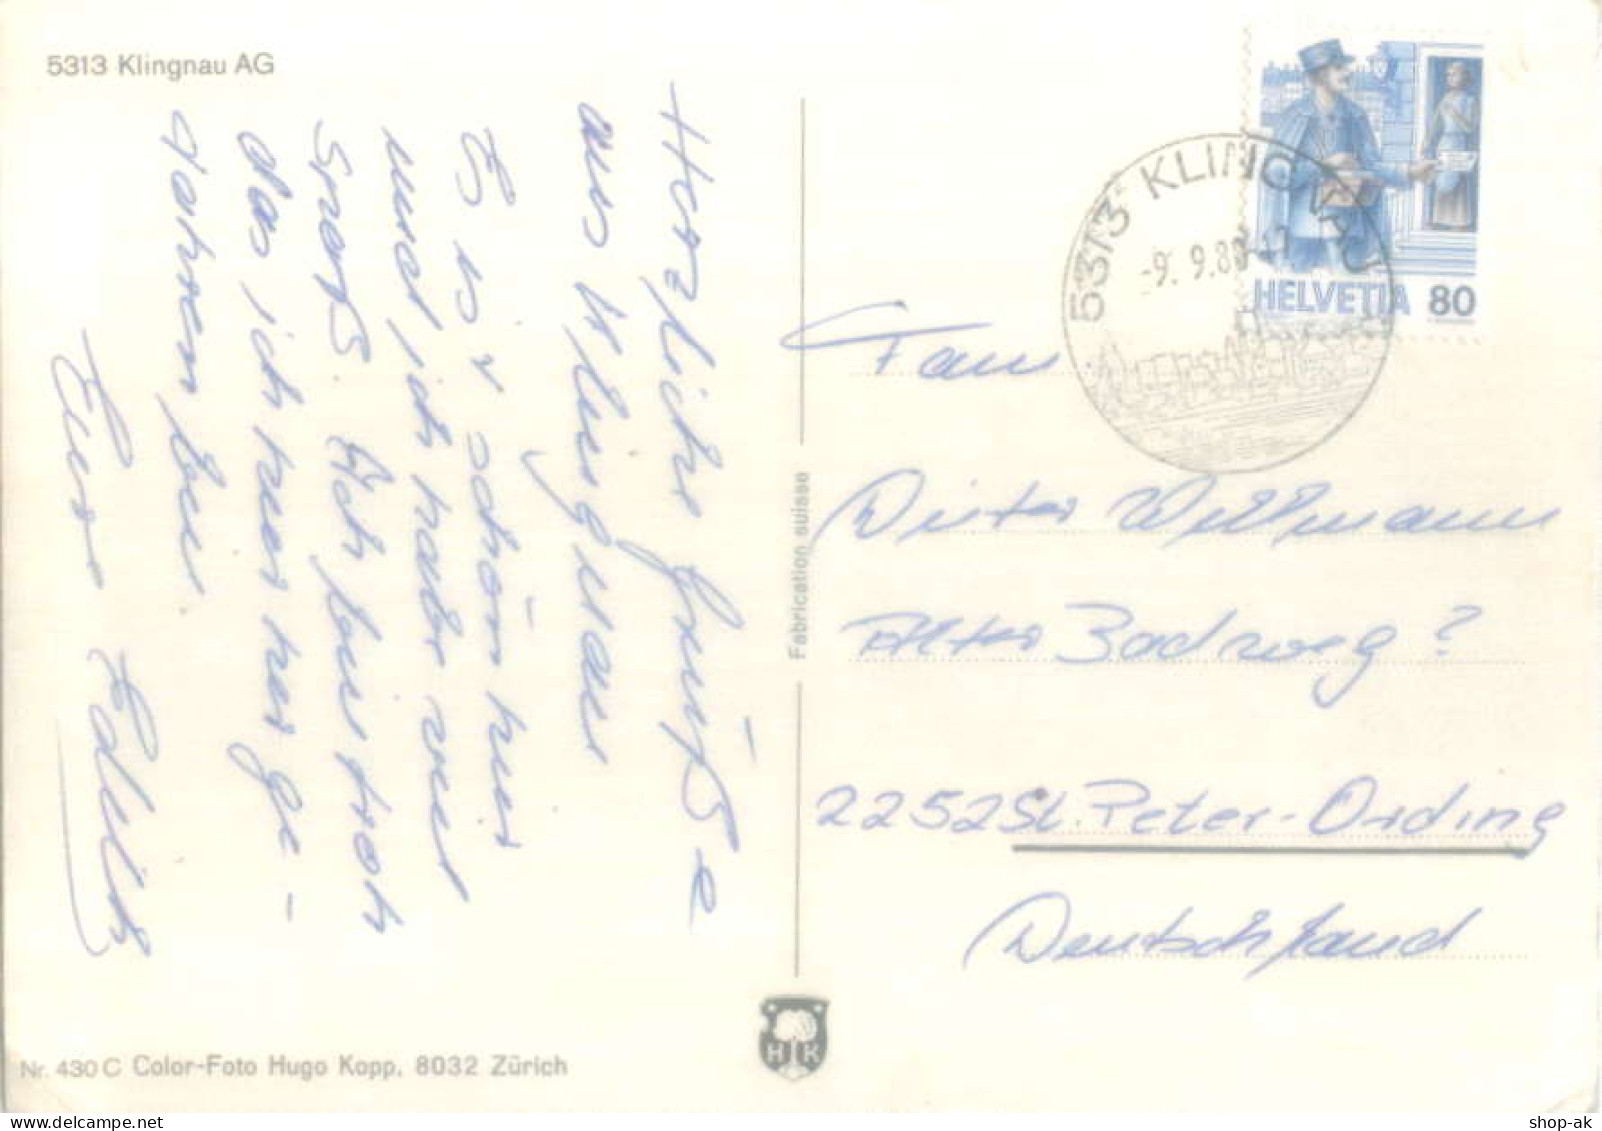 5313 Klingnau AG
Herzliche Grüße
aus Klingnau
Es ist schön hier
und ich habe viel
Spaß. Ich bin froh
das ich hier her ge-
fahren bin.
Eure Edith
Nr. 430 C Color-Foto Hugo Kopp, 8032 Zürich
Fabrication suisse
H K
5313 KLINGNAU
-9. 9.88-17
HELVETIA 80
Fam
Dieter Willmann
Alter Badweg ?
2252 St. Peter-Ording
Deutschland
shop-ak